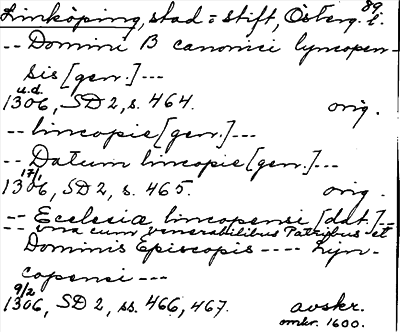 Linköping, stad = stift, Österg. l. 89
-- Domini B canonici lyncopen-
sis [gen.] ---
u.d.
1306, SD 2, s. 464. orig.
-- lincopie [gen.] ---
-- Datum lincopie [gen.] ---
17/1
1306, SD 2, s. 465. orig.
-- Ecclesiæ lincopensi [dat.] --
-- una cum venerabilibus Patribus et
Dominis Episcopis ---- Lyn-
copensi ---
9/2
1306, SD 2, ss. 466, 467. avskr.
omkr. 1600.